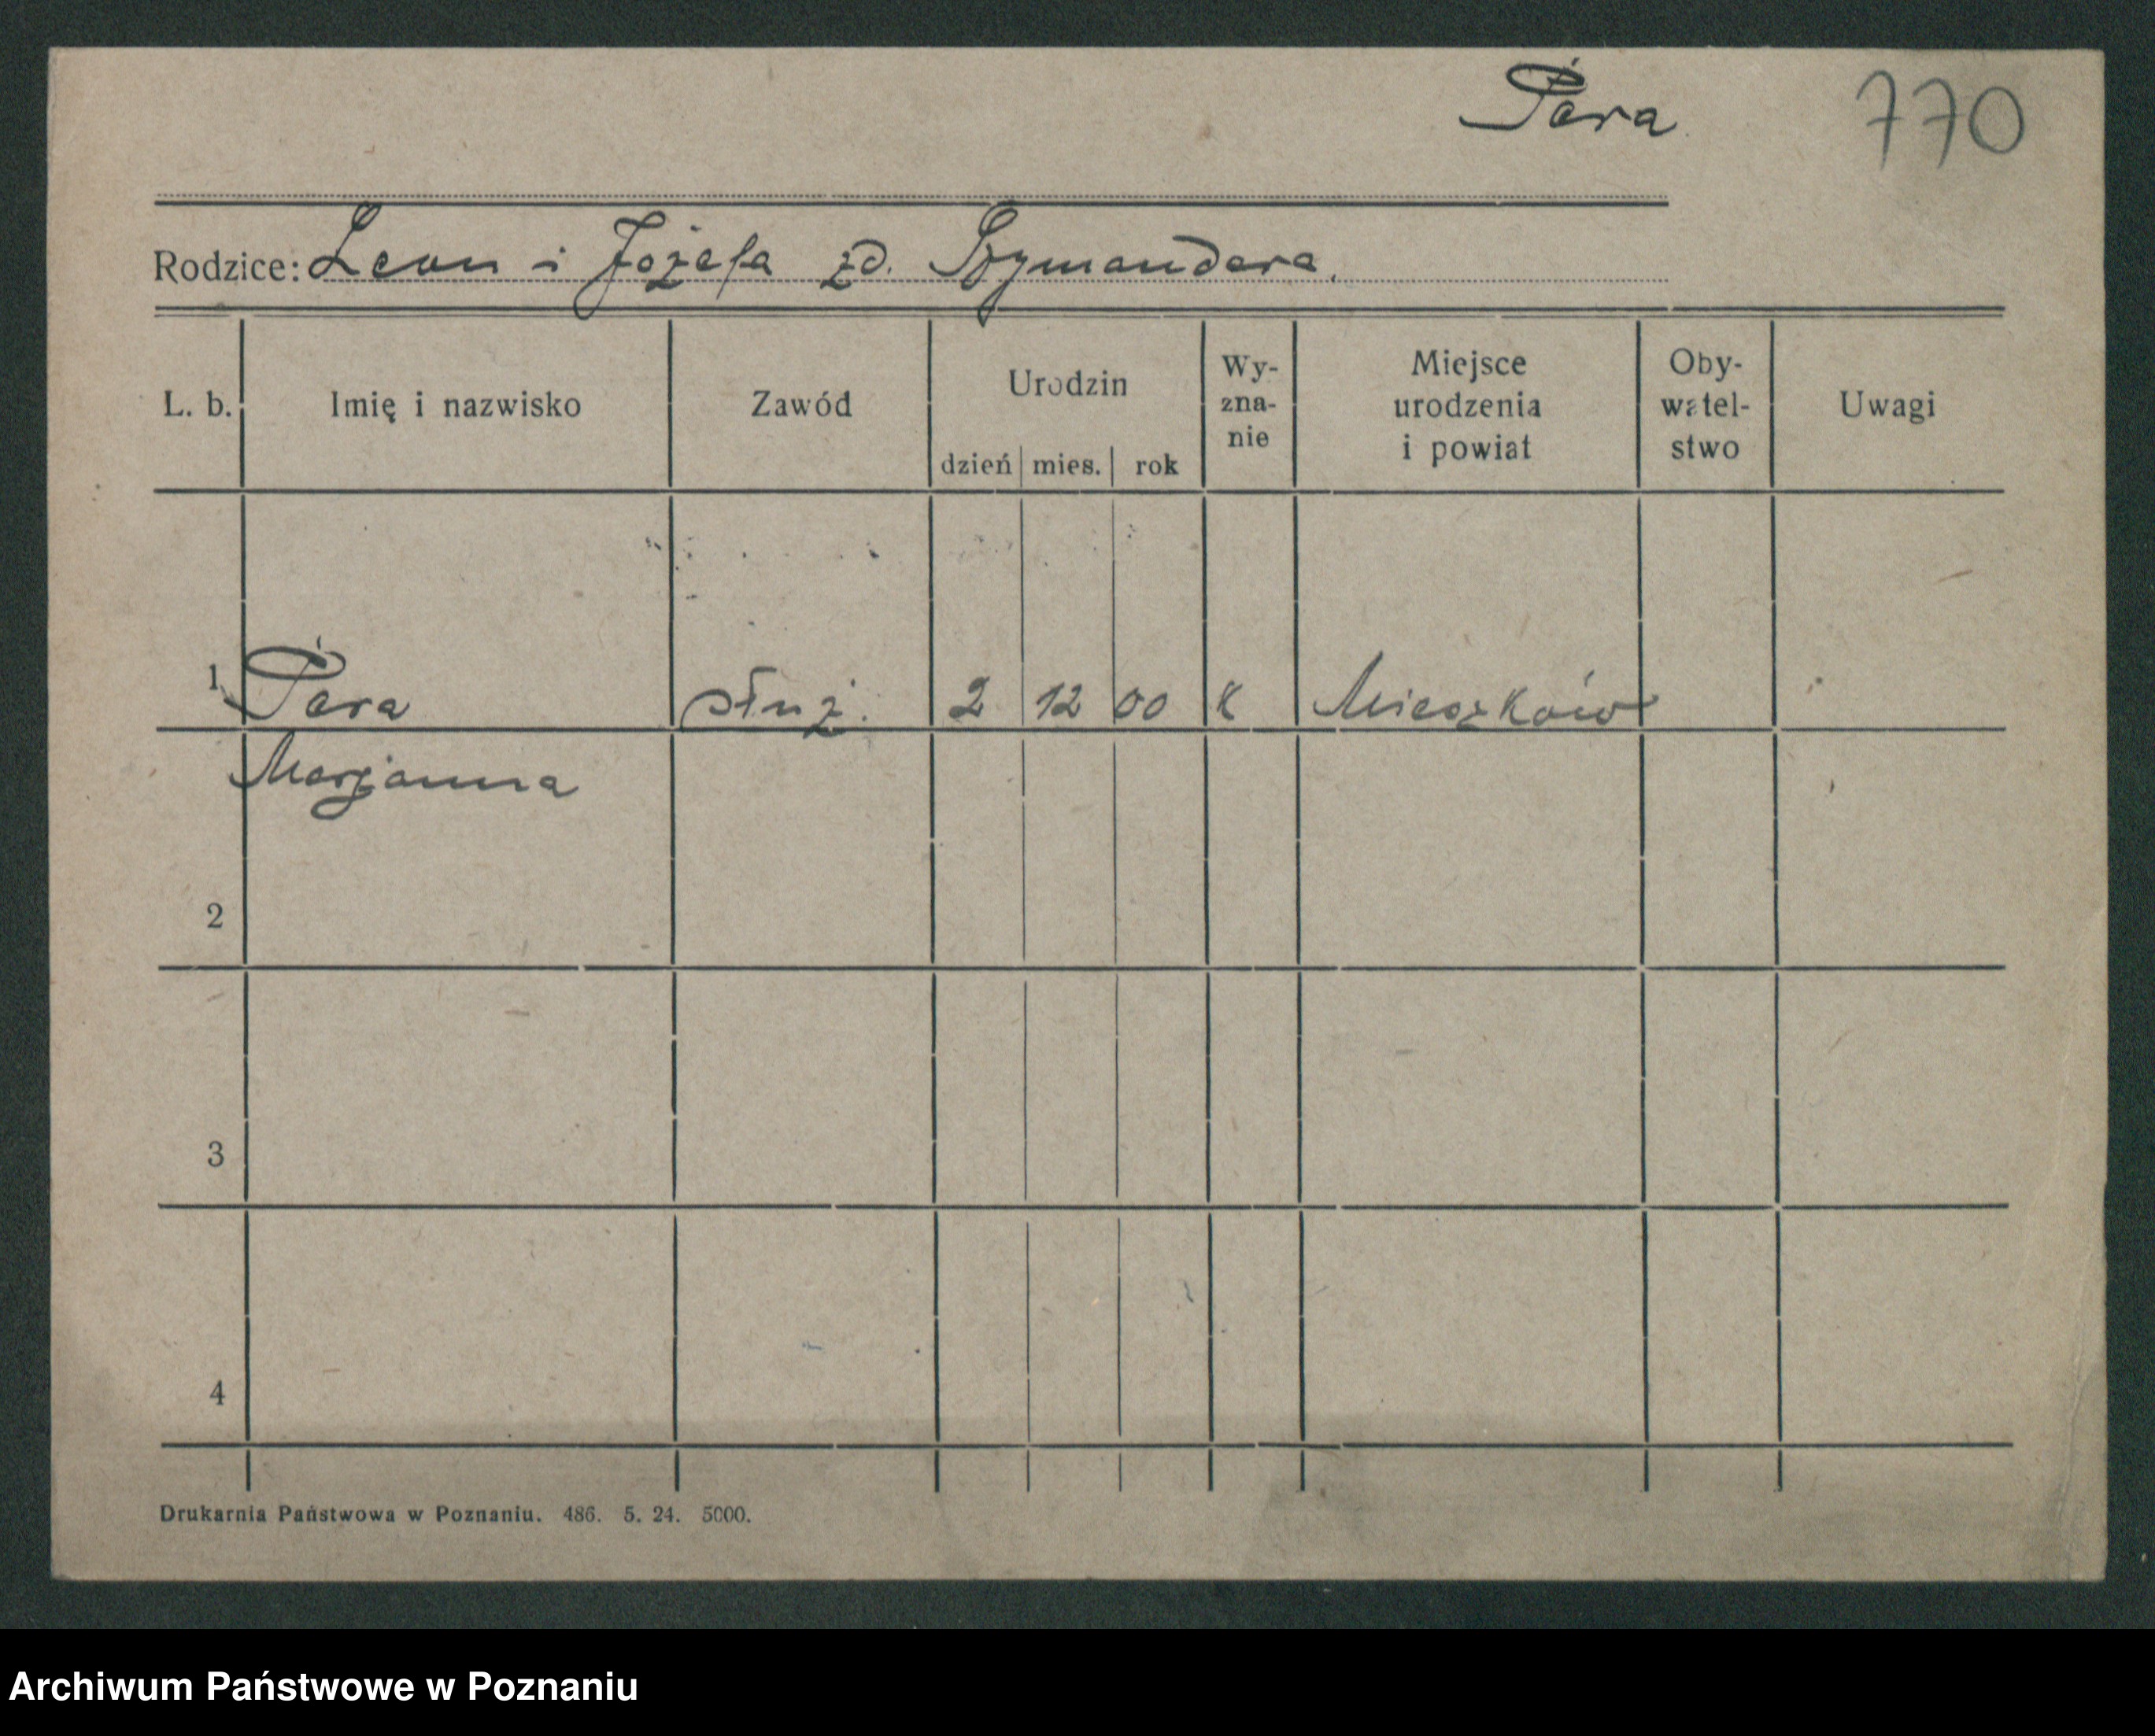 Pera 770
Rodzice: Leon i Józefa zd. Szymandera.
L. b. Imię i nazwisko Zawód Urodzin dzień mies. rok Wy-zna-nie Miejsce urodzenia i powiat Oby-watel-stwo Uwagi
1 Pera służ. 2 12 00 k Mieszków
Marjanna
2
3
4
Drukarnia Państwowa w Poznaniu. 486. 5. 24. 5000.
Archiwum Państwowe w Poznaniu